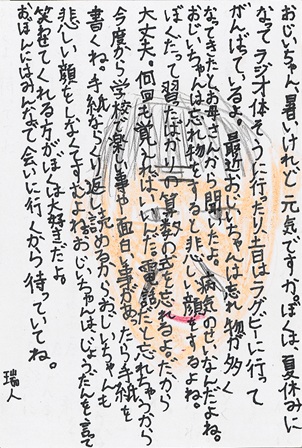 おじいちゃん、暑いけれど元気ですか。ぼくは夏休みに
なってラジオ体そうに行ったり土日はラグビーに行って
がんばっているよ。最近おじいちゃんは忘れ物が多く
なってきたとお母さんから聞いたよ。病気のせいなんだよね。
おじいちゃんは忘れ物をすると悲しい顔をするよね。
ぼくだって習ったばかりの算数の式を忘れるよ。だから
大丈夫。何回も覚えればいいんだ。電話だと忘れちゃうから
今度から学校で楽しい事や面白い事があったら手紙を
書くね。手紙ならくり返し読めるからおじいちゃんも
悲しい顔をしなくてすむよね。おじいちゃんはじょうだんを言って
笑わせてくれる方がぼくは大好きだよ。
おぼんにはみんなで会いに行くから待っていてね。
瑞人